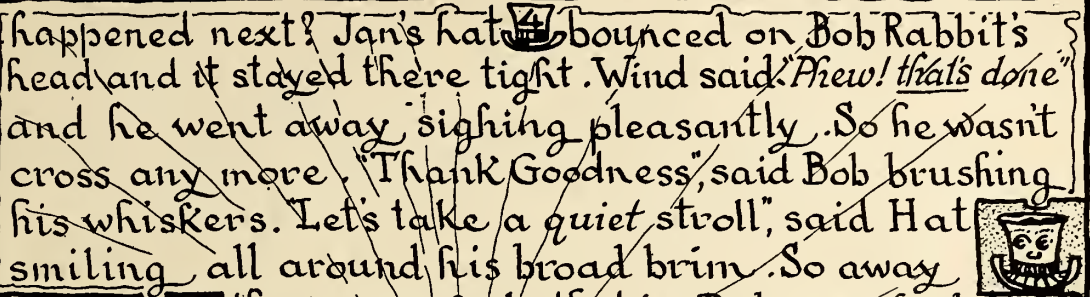 happened next? Jan's hat 4 bounced on Bob Rabbit's
head and it stayed there tight. Wind said: "Phew! that's done"
and he went away sighing pleasantly. So he wasn't
cross any more. "Thank Goodness", said Bob brushing
his whiskers. "Let's take a quiet stroll", said Hat
smiling all around his broad brim. So away